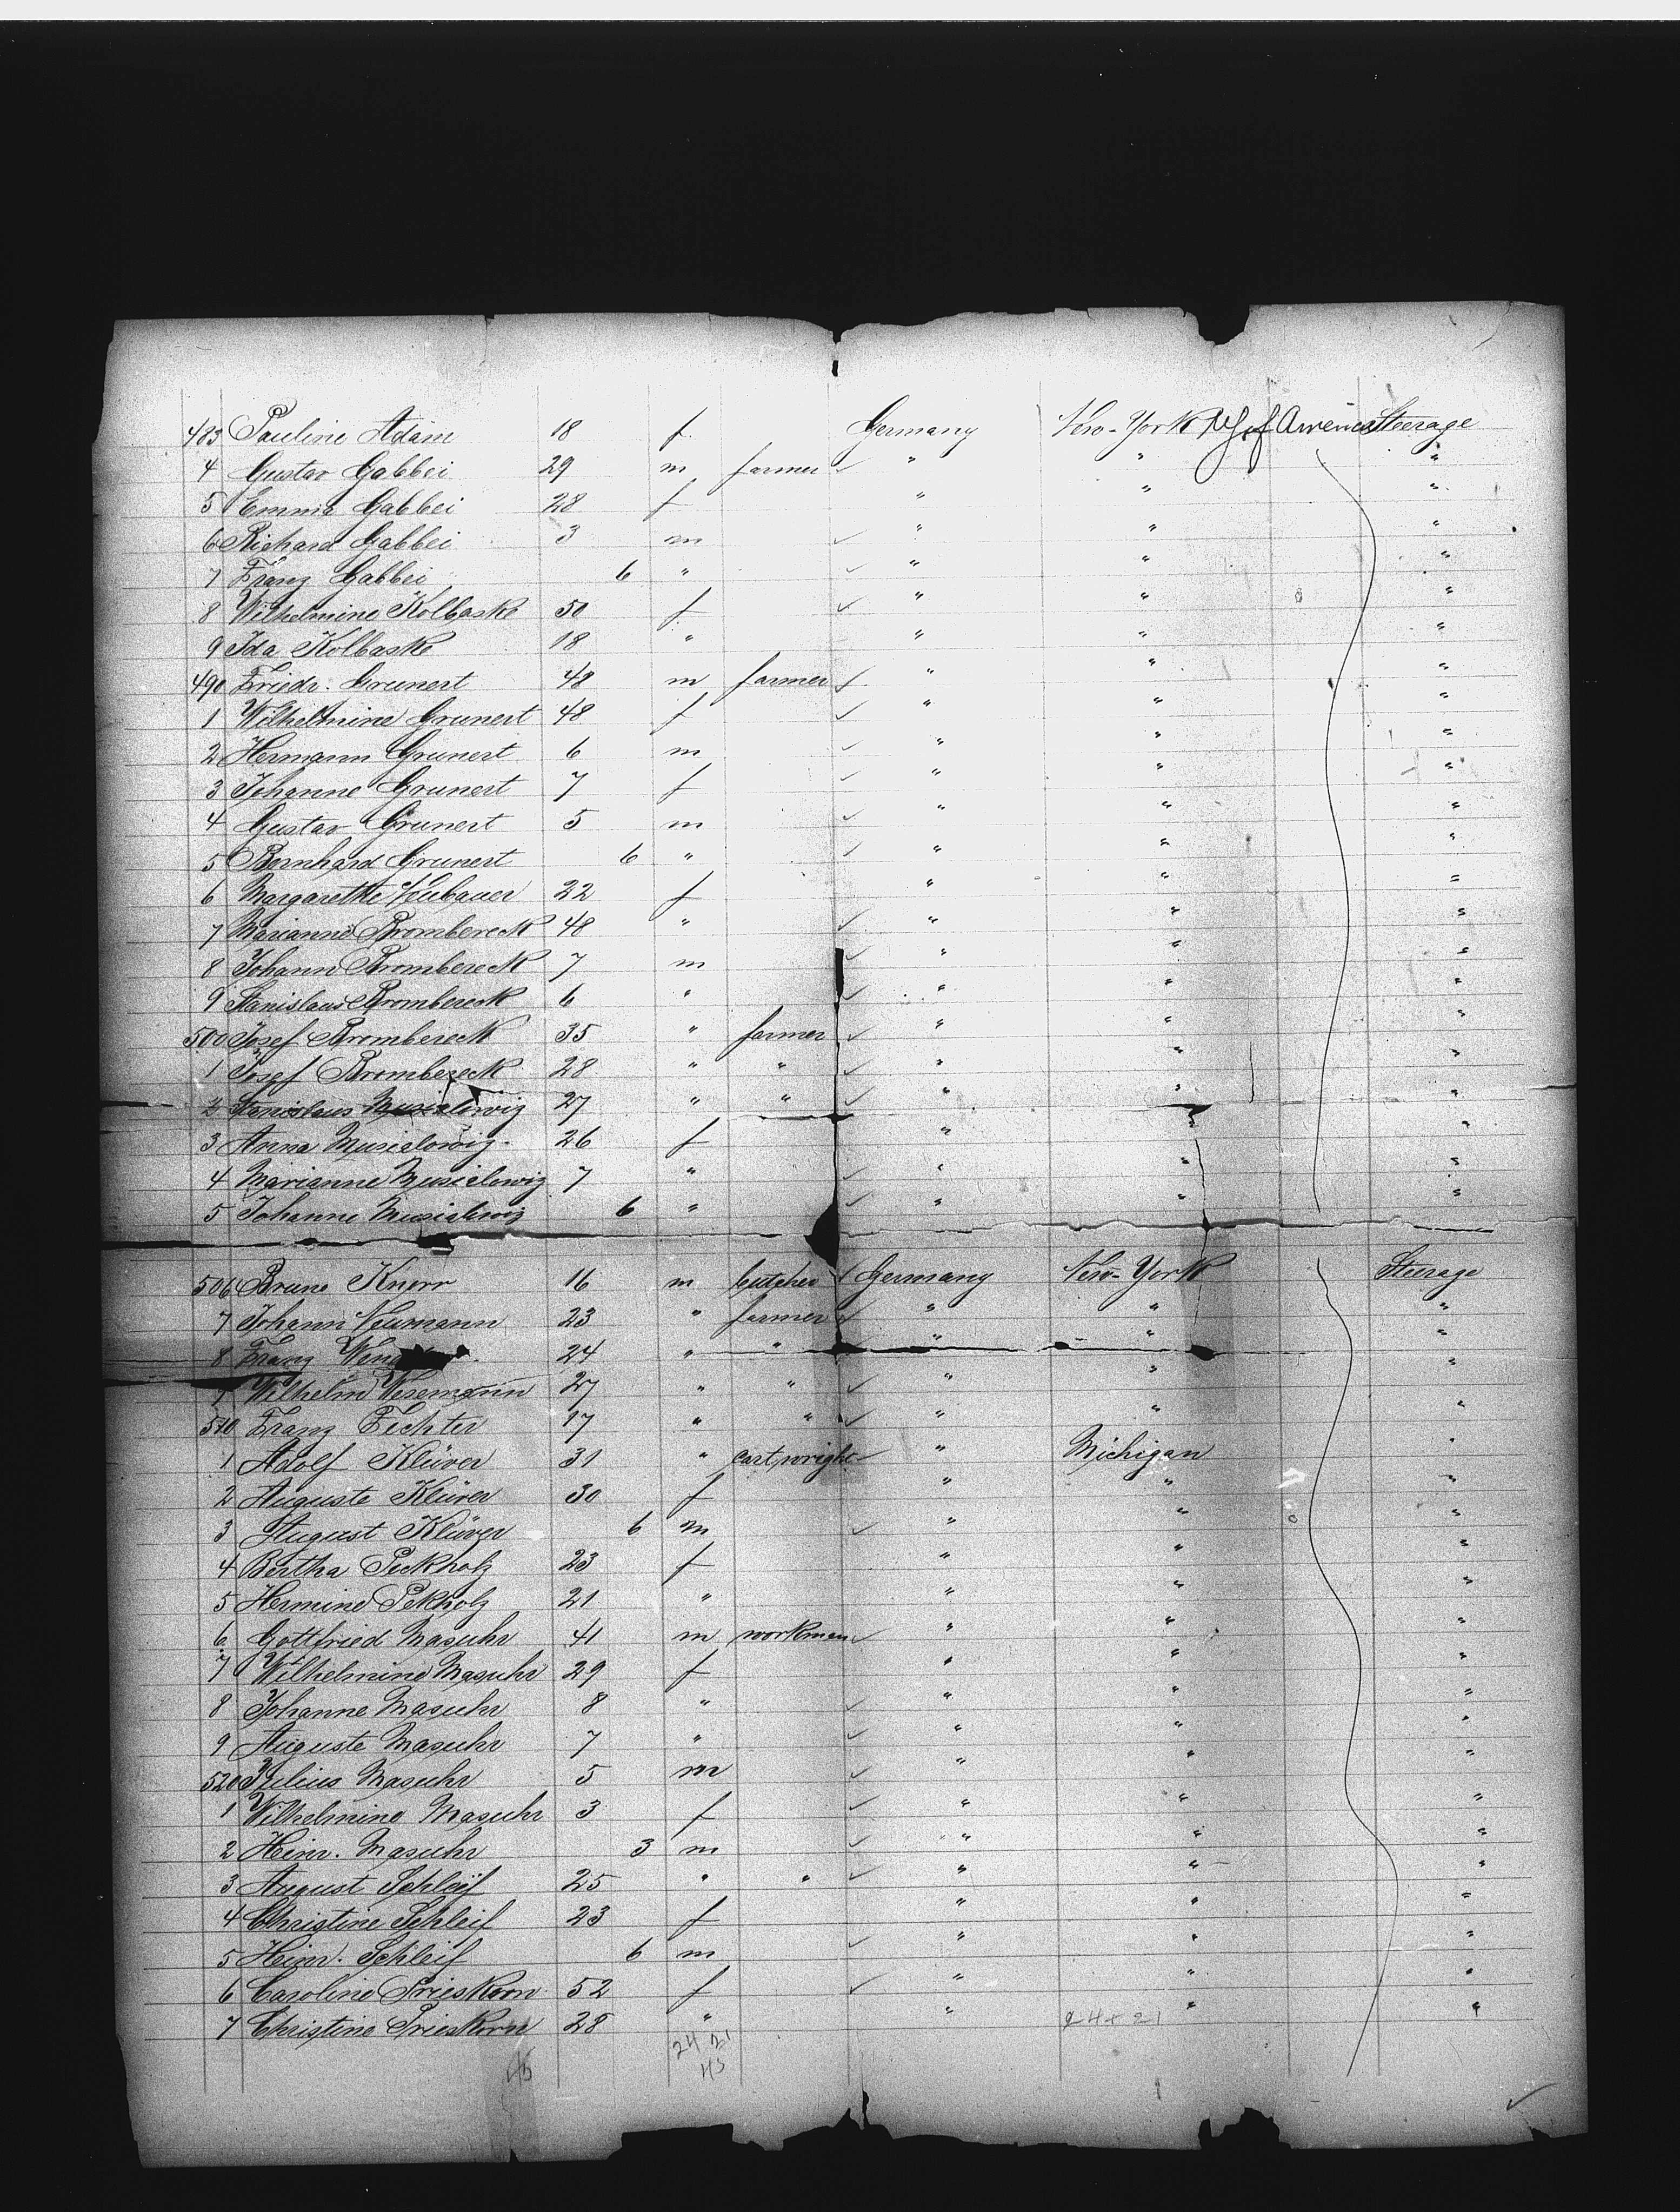 483 Pauline Adam 18 f. Germany New-York U S of America Steerage
4 Gustav Gabbei 29 m farmer " " "
5 Emma Gabbei 28 f " " "
6 Richard Gabbei 3 m " " "
7 Franz Gabbei 6 " " " "
8 Wilhelmine Kolbaske 50 f " " "
9 Ida Kolbaske 18 " " " "
490 Friedr. Grunert 48 m farmer " " "
1 Wilhelmine Grunert 48 f " " "
2 Hermann Grunert 6 m " " "
3 Johanne Grunert 7 f " " "
4 Gustav Grunert 5 m " " "
5 Bernhard Grunert 6 " " " "
6 Margarethe Neubauer 22 f " " "
7 Marianne Brombereck 48 " " " "
8 Johann Brombereck 7 m " " "
9 Stanislaus Brombereck 6 " " " "
500 Josef Brombereck 35 " farmer " " "
1 Josef Brombereck 28 " " " " "
2 Stanislaus Musialowiz 27 " " " " "
3 Anna Musialowiz 26 f " " "
4 Marianne Musialowiz 7 " " " "
5 Johanne Musialowiz 6 " " " "
506 Bruno Knorr 16 m butcher Germany New-York Steerage
7 Johann Neumann 23 " farmer " " "
8 Franz 24 " " " " "
9 Wilhelm Wesemann 27 " " " " "
510 Franz Fechter 17 " " " " "
1 Adolf Klüver 31 " cartwright " Michigan "
2 Auguste Klüver 30 f " " "
3 August Klüver 6 m " " "
4 Bertha Peckholz 23 f " " "
5 Hermine Pekholz 21 " " " "
6 Gottfried Masuhr 41 m workman " " "
7 Wilhelmine Masuhr 29 f " " "
8 Johanne Masuhr 8 " " " "
9 Auguste Masuhr 7 " " " "
520 Julius Masuhr 5 m " " "
1 Wilhelmine Masuhr 3 f " " "
2 Heinr. Masuhr 3 m " " "
3 August Schleif 25 " " " " "
4 Christine Schleif 23 f " " "
5 Heinr. Schleif 6 m " " "
6 Caroline Prieskorn 52 f " " "
7 Christine Prieskorn 28 " " " "
24 + 21
24 21
45
45